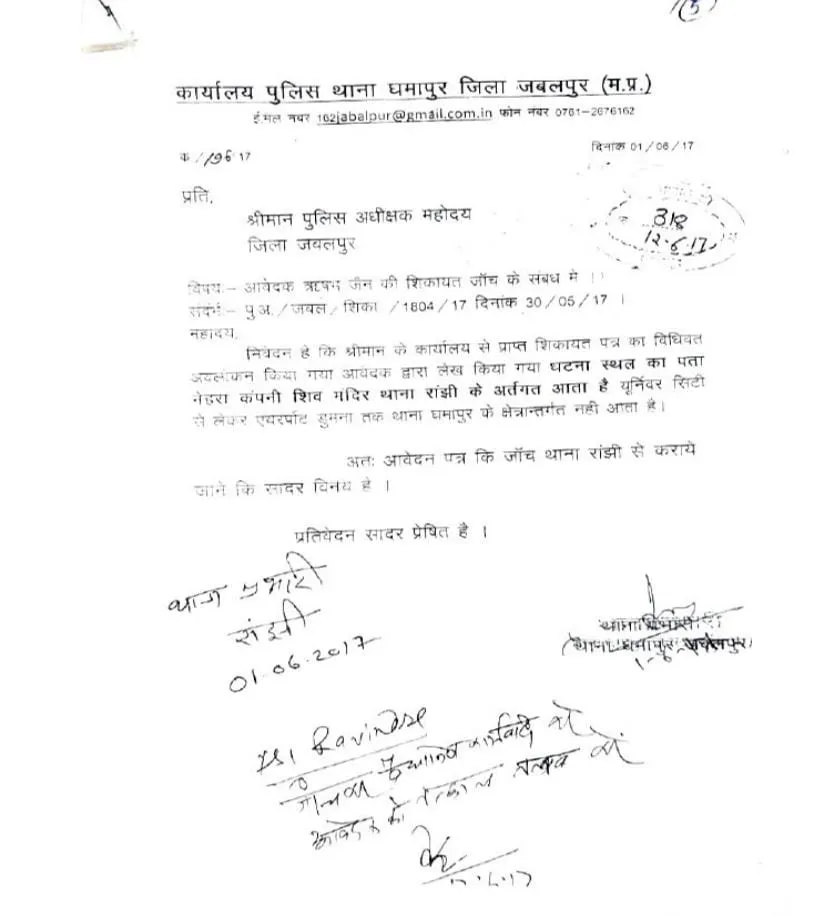 (5)
कार्यालय पुलिस थाना घमापुर जिला जबलपुर (म.प्र.)
ई.मेल नंबर 162jabalpur@gmail.com.in फोन नंबर 0761-2676162
क /196 17
दिनांक 01/06/17
प्रति,
श्रीमान पुलिस अधीक्षक महोदय
जिला जबलपुर
318
12.6.17
विषय:- आवेदक ऋषभ जैन की शिकायत जॉच के संबध मे ।
संदर्भ:- पु.अ./जबल/शिका /1804/17 दिनांक 30/05/17 ।
महोदय,
निवेदन है कि श्रीमान के कार्यालय से प्राप्त शिकायत पत्र का विधिवत
अवलोकन किया गया आवेदक द्वारा लेख किया गया घटना स्थल का पता
नेहरा कंपनी शिव मंदिर थाना रांझी के अर्तगत आता है यूर्निवर सिटी
से लेकर एयरर्पाट डुमना तक थाना घमापुर के क्षेत्रान्तर्गत नही आता है।
अतः आवेदन पत्र कि जॉच थाना रांझी से कराये
जाने कि सादर विनय है ।
प्रतिवेदन सादर प्रेषित है ।
थाना प्रभारी
रांझी
01.06.2017
थाना प्रभारी
(थाना घमापुर जबलपुर)
को तत्काल